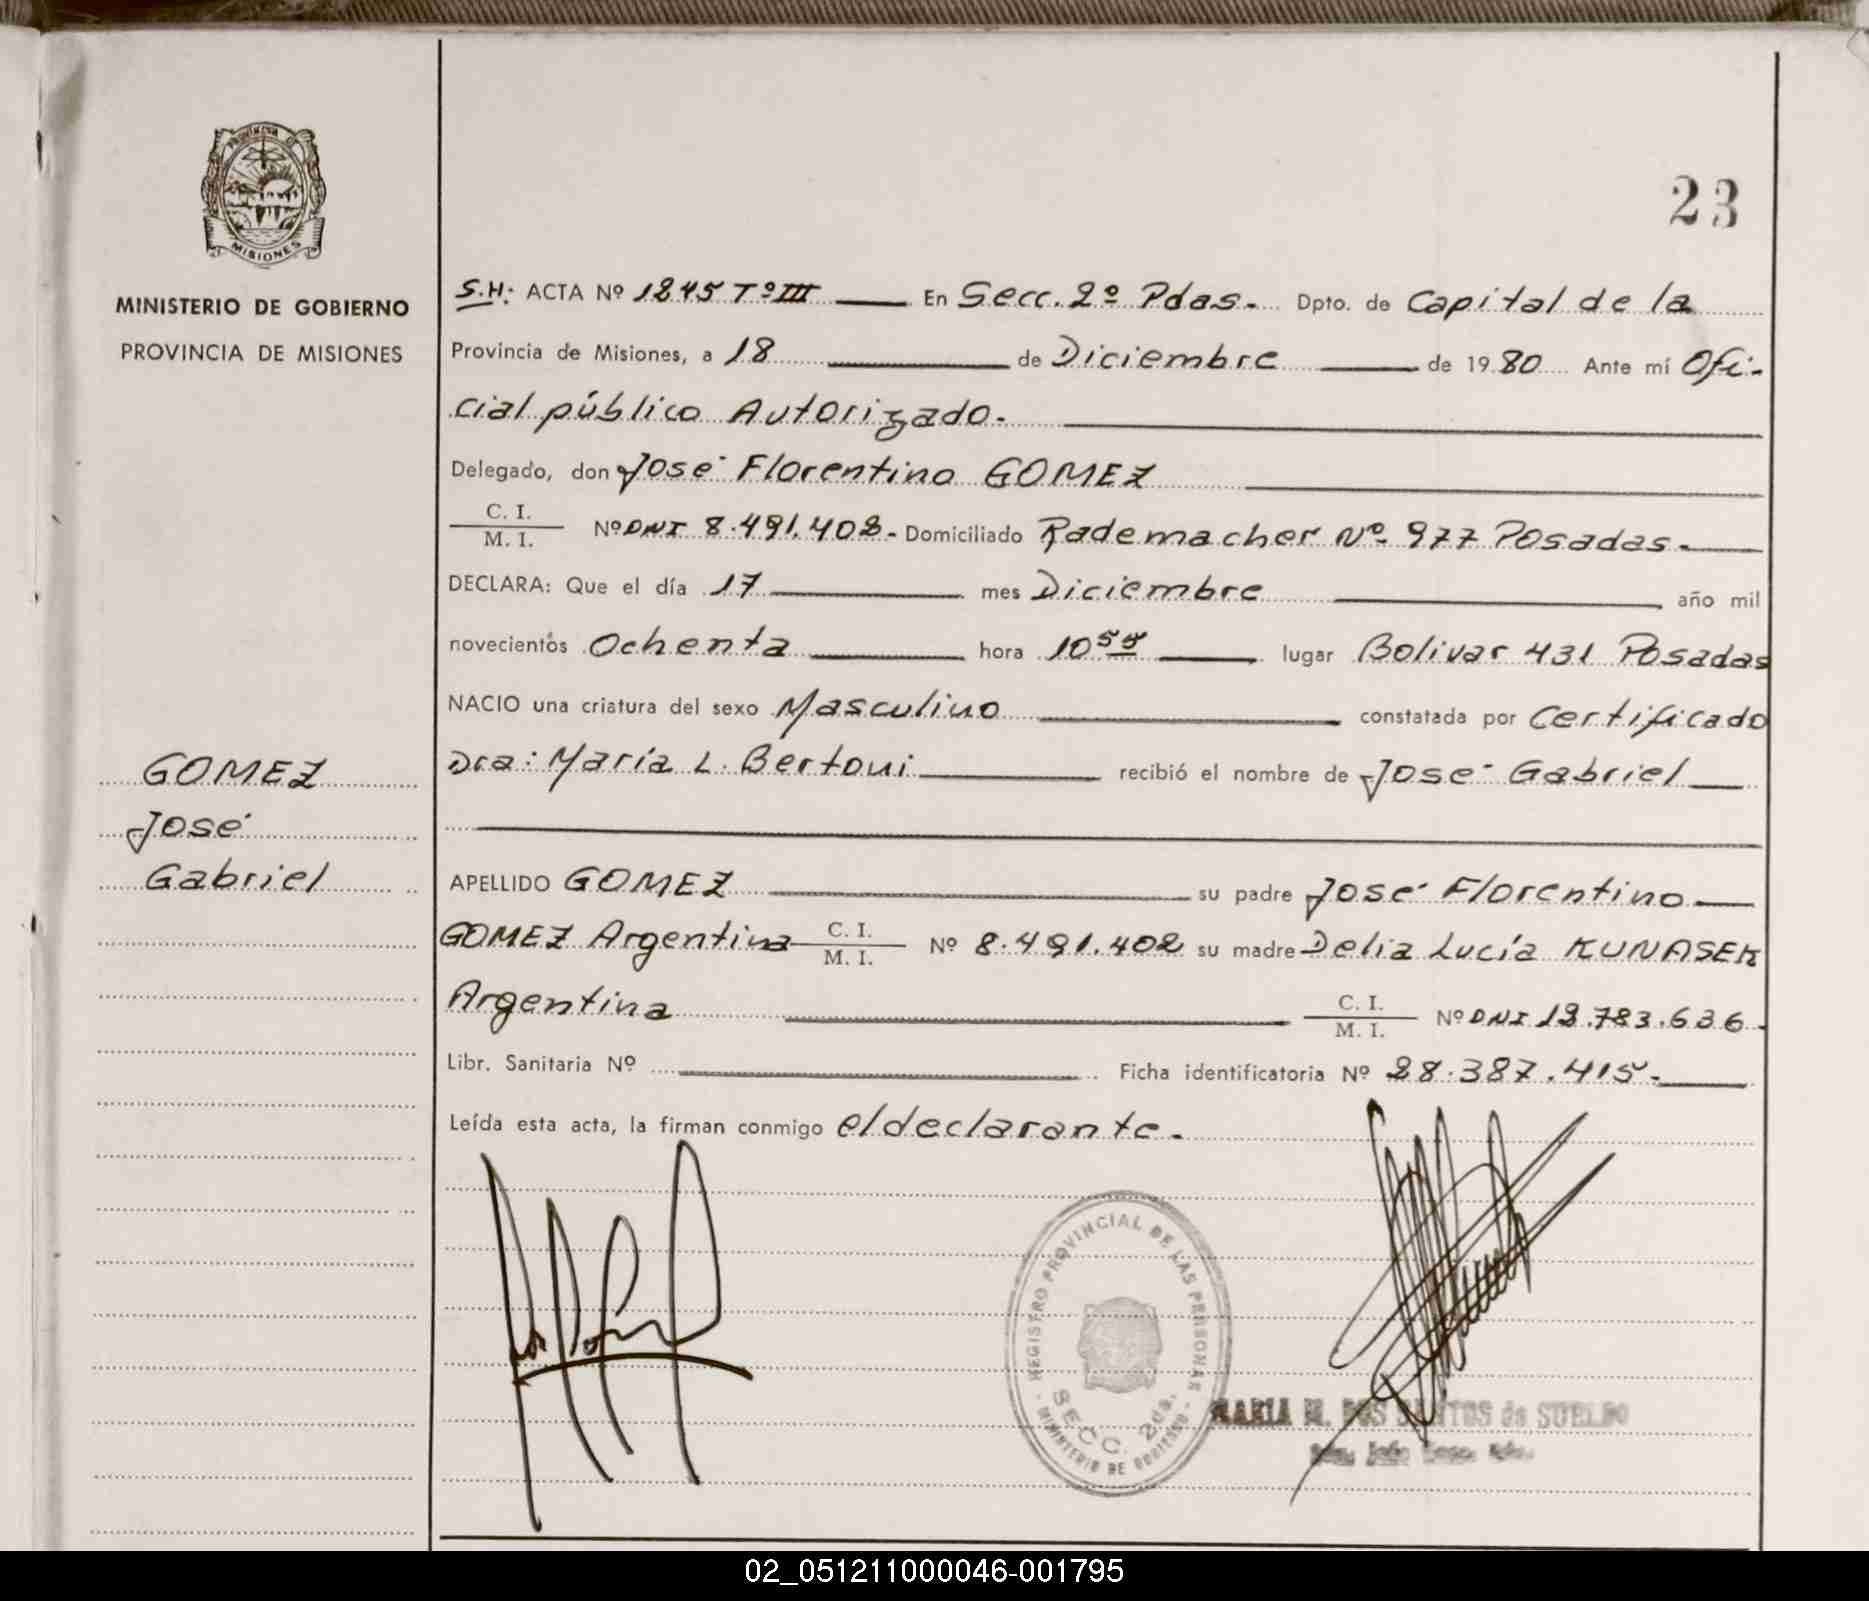 PROVINCIA
MISIONES
MINISTERIO DE GOBIERNO
PROVINCIA DE MISIONES
GOMEZ
José
Gabriel
23
S.H: ACTA Nº 1845 Tº III En Secc. 2º Pdas. Dpto. de Capital de la
Provincia de Misiones, a 18 de Diciembre de 1980 Ante mí Ofi-
cial público Autorizado.
Delegado, don José Florentino GOMEZ
C. I.
M. I. Nº DNI 8.491.402. Domiciliado Rademacher Nº 977 Posadas.
DECLARA: Que el día 17 mes Diciembre año mil
novecientos Ochenta hora 10 55 lugar Bolivar 431 Posadas
NACIO una criatura del sexo Masculino constatada por Certificado
Dra: María L. Bertoni recibió el nombre de José Gabriel
APELLIDO GOMEZ su padre José Florentino
GOMEZ Argentina C. I. M. I. Nº 8.491.402 su madre Delia Lucía KUNASEK
Argentina C. I. M. I. Nº DNI 12.783.636.
Libr. Sanitaria Nº Ficha identificatoria Nº 28.387.415.
Leída esta acta, la firman conmigo el declarante.
REGISTRO PROVINCIAL DE LAS PERSONAS
SECC. 2da.
MINISTERIO DE GOBIERNO
MARIA M. DOS SANTOS de SUELDO
02_051211000046-001795